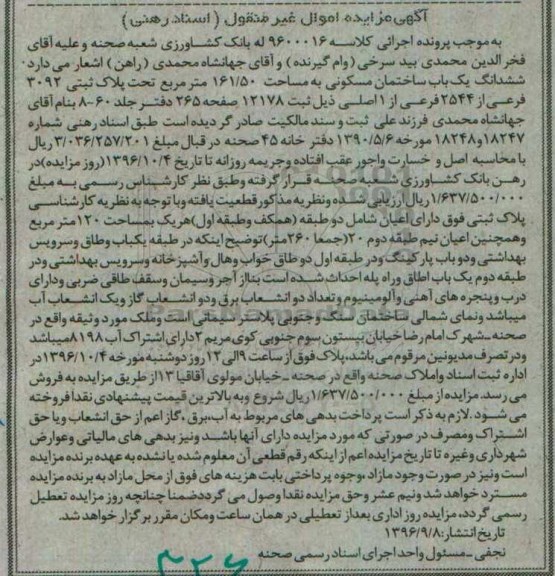 آگهی مزایده اموال غیر منقول ( اسناد رهنی )
به موجب پرونده اجرائی کلاسه ۹۶۰۰۰۱۶ له بانک کشاورزی شعبه صحنه و علیه آقای
فخر الدین محمدی بید سرخی (وام گیرنده) و آقای جهانشاه محمدی (راهن) اشعار می دارد
ششدانگ یک باب ساختمان مسکونی به مساحت ۱۶۱/۵۰ متر مربع تحت پلاک ثبتی ۳۰۹۲
فرعی از ۲۵۴۴ فرعی از ۱ اصلی ذیل ثبت ۱۲۱۷۸ صفحه ۲۶۵ دفتر جلد ۶۰-۸ بنام آقای
جهانشاه محمدی فرزند علی ثبت و سند مالکیت صادر گردیده است طبق اسناد رهنی شماره
۱۸۲۴۷ و ۱۸۲۴۸ مورخه ۱۳۹۰/۵/۶ دفتر خانه ۴۵ صحنه در قبال مبلغ ۳/۰۳۶/۲۵۷/۲۰۱ ریال
با محاسبه اصل و خسارت واجور عقب افتاده و جریمه روزانه تا تاریخ ۱۳۹۶/۱۰/۴ (روز مزایده) در
رهن بانک کشاورزی شعبه صحنه قرار گرفته و طبق نظر کارشناس رسمی به مبلغ
۱/۶۳۷/۵۰۰/۰۰۰ ریال ارزیابی شده و نظریه مذکور قطعیت یافته و با توجه به نظریه کارشناسی
پلاک ثبتی فوق دارای اعیان شامل دو طبقه (همکف و طبقه اول) هر یک بمساحت ۱۲۰ متر مربع
وهمچنین اعیان نیم طبقه دوم ۲۰ (جمعا ۲۶۰ متر) توضیح اینکه در طبقه یکباب وطاق وسرویس
بهداشتی ودو باب پارکینگ ودر طبقه اول دو طاق خواب وهال و آشپزخانه وسرویس بهداشتی ودر
طبقه دوم یک باب اطاق وراه پله احداث شده است بنا از آجر وسیمان وسقف طاقی ضربی ودارای
درب و پنجره های آهنی و آلومینیوم و تعداد دو انشعاب برق ودو انشعاب گاز ویک انشعاب آب
میباشد ونمای شمالی ساختمان سنگ و جنوبی پلاستر سیمانی است وملک مورد وثیقه واقع در
صحنه ـ شهرک امام رضا خیابان بیستون سوم جنوبی کوی مریم ۲ دارای اشتراک آب ۸۱۹۸ میباشد
ودر تصرف مدیونین مرقوم می باشد، پلاک فوق از ساعت ۹ الی ۱۲ روز دوشنبه مورخه ۱۳۹۶/۱۰/۴ در
اداره ثبت اسناد و املاک صحنه واقع در صحنه ـ خیابان مولوی آقاقیا ۱۳ از طریق مزایده به فروش
می رسد. مزایده از مبلغ ۱/۶۳۷/۵۰۰/۰۰۰ ریال شروع وبه بالاترین قیمت پیشنهادی نقدا فروخته
می شود. لازم به ذکر است پرداخت بدهی های مربوط به آب، برق، گاز اعم از حق انشعاب ویا حق
اشتراک ومصرف در صورتی که مورد مزایده دارای آنها باشد ونیز بدهی های مالیاتی وعوارض
شهرداری وغیره تا تاریخ مزایده اعم از اینکه رقم قطعی آن معلوم شده یا نشده به عهده برنده مزایده
است ونیز در صورت وجود مازاد، وجوه پرداختی بابت هزینه های فوق از محل مازاد به برنده مزایده
مسترد خواهد شد ونیم عشر وحق مزایده نقدا وصول می گردد ضمنا چنانچه روز مزایده تعطیل
رسمی گردد، مزایده روز اداری بعد از تعطیلی در همان ساعت ومکان مقرر برگزار خواهد شد.
تاریخ انتشار: ۱۳۹۶/۹/۸
نجفی ـ مسئول واحد اجرای اسناد رسمی صحنه